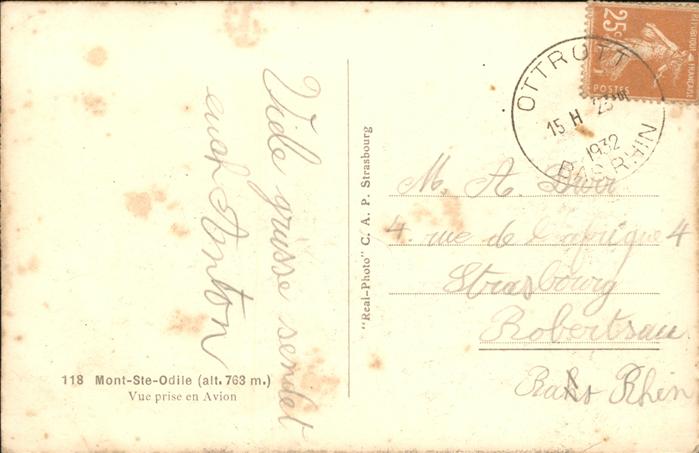 Vide grüsse sendet
euch Anton
118 Mont-Ste-Odile (alt. 763 m.)
Vue prise en Avion
"Real-Photo" C. A. P. Strasbourg
25c
POSTES
OTTROTT
15 H 23
1932
BAS RHIN
M. A. Dürr
4. rue de l'afrique 4
Strasbourg
Robertsau
Bas Rhin